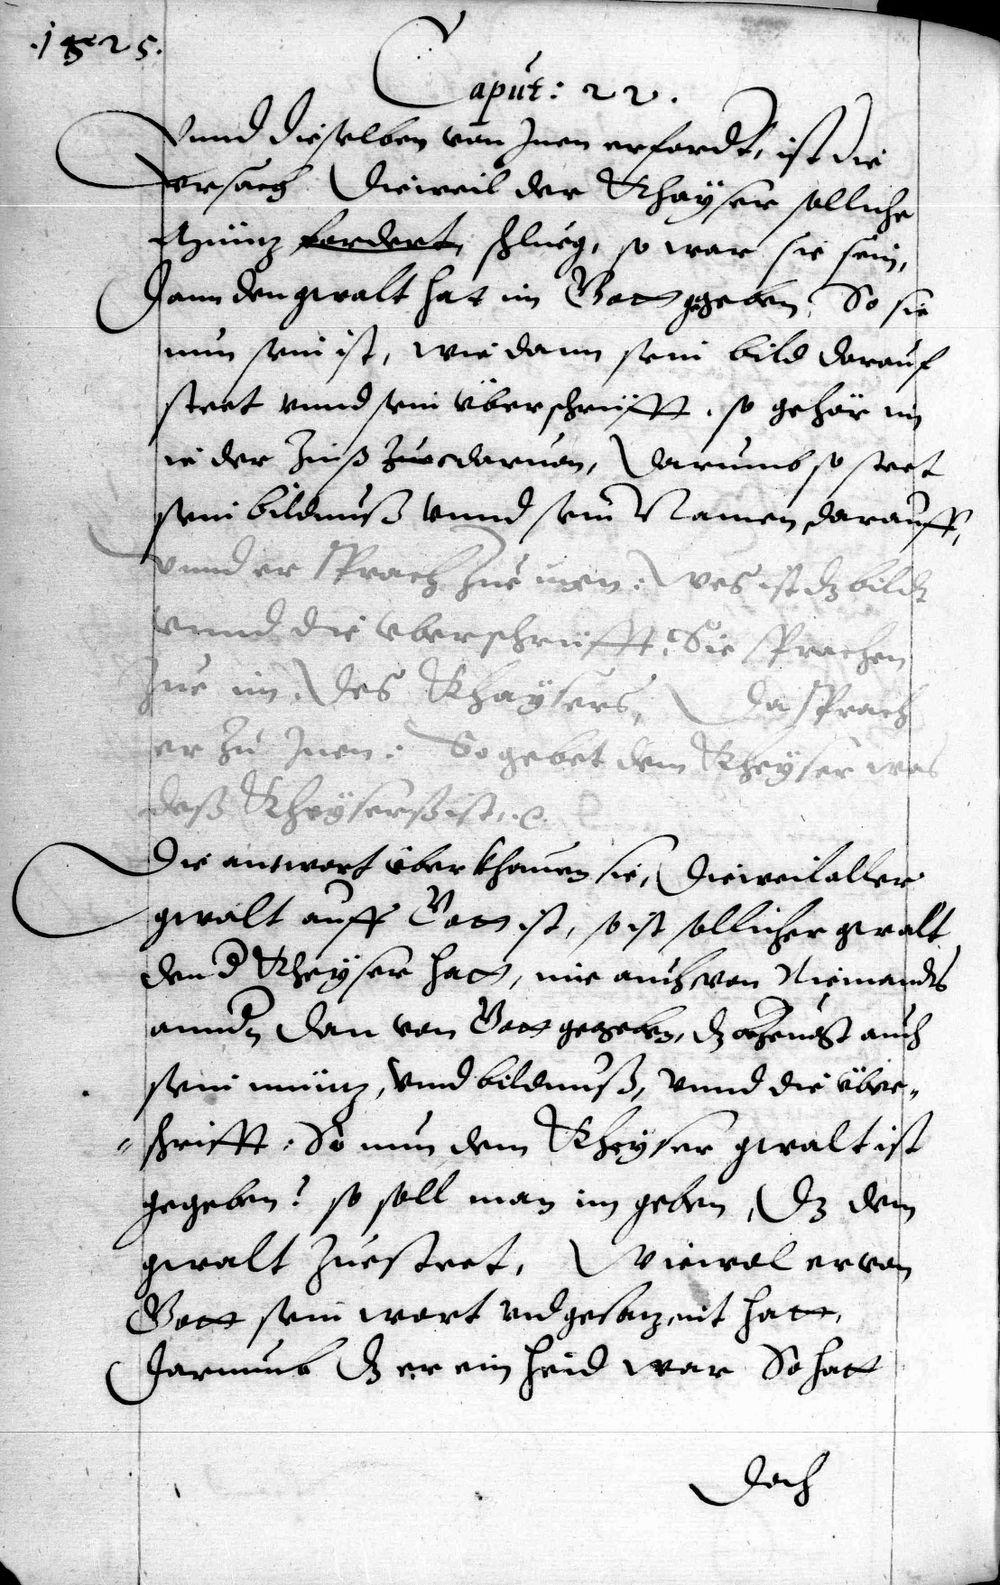 .1525.
Caput: 22.
Vnnd dieselben von Jnen erfordt, ist die
vrsach Dieweil der Khaÿser solliche
Müntz fordert, schlueg, so war sie sein,
Dann den gwalt hat im Gott gegeben, So sie
nun sein ist, wie dann sein bild darauf
steet vnnd sein überschrifft, so gehör im
ie der Zinß Zue daruon, Darumb so steet
sein bildnuß vnnd sein Namen darauff,
vnnd er sprach Zue inen: Wes ist dz bildt
vnnd die vberschrifft? Sie sprachen
Zue im, Des Khaÿsers, Da sprach
er Zu Jnen: So gebet dem Kheÿser was
deß Kheÿserß ist, .c.
Die antwort überkhamen sie, Dieweil aller
gwalt auß Gott ist, so ist sollicher gwalt
den d Kheÿser hatt, nie auch von Niemandts
anndn dan von Gott gegeben, dz bezeugt auch
sein müntz, vnnd bildnuß, vnnd die über„
„schrifft: So nun dem Kheÿser gwalt ist
gegeben? so soll man im geben, Dz dem
gwalt Zuesteet, Wiewol er von
Gott sein wort vnd gesatz nit hatt,
Darumb dz er ein heid war So hatt
Doch